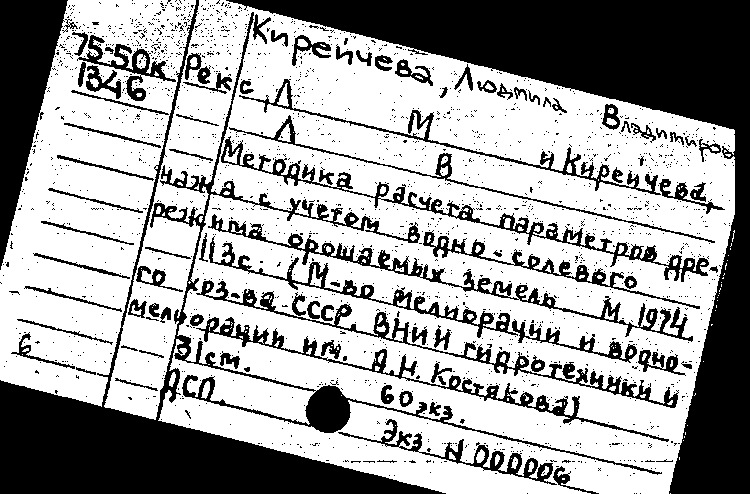 Кирейчева, Людмила Владимиров
75-50к
1346
Рекс, Л М и Кирейчева,
Л В
Методика расчета параметров дре-
нажа с учетом водно-солевого
режима орошаемых земель. М., 1974.
113с. (М-во мелиорации и водно-
го хоз-ва СССР. ВНИИ гидротехники и
мелиорации им. А.Н. Костякова)
31см. 60 экз.
ДСП. Экз. N 000006
6